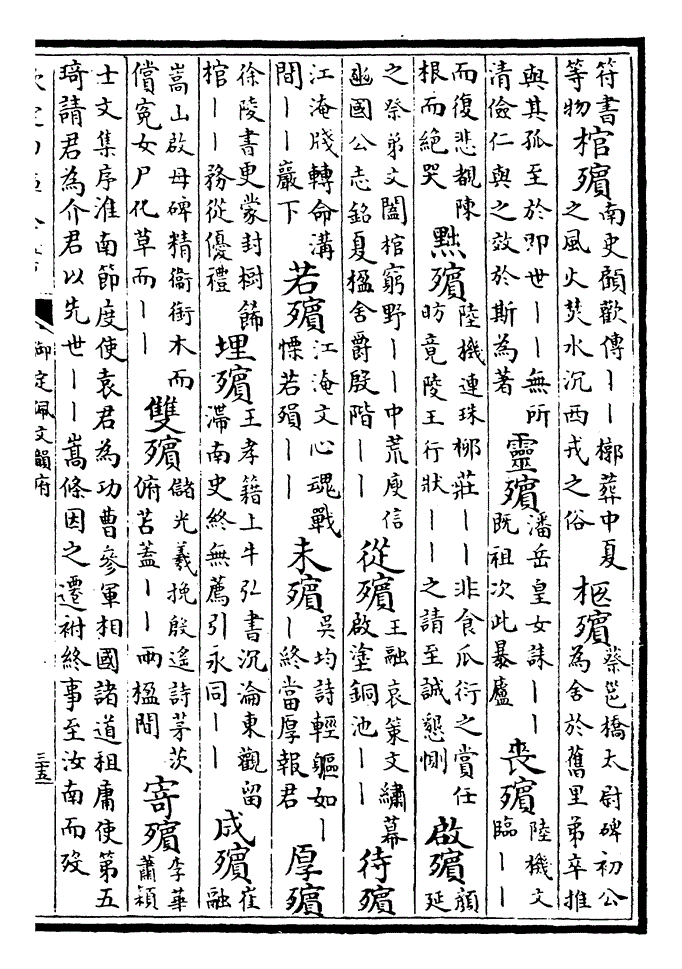 符書棺殯南史顧歡傳丨丨槨葬中夏柩殯蔡邕橋太尉碑初公
等物棺殯之風火焚水沉西戎之俗柩殯為舍於舊里弟卒推
與其孤至於即世丨丨無所靈殯潘岳皇女誄丨丨喪殯陸機文
清儉仁與之效於斯為著靈殯既祖次此暴廬喪殯臨丨丨
而復悲覩陳黜殯陸機連珠柳莊丨丨非食瓜衍之賞任啟殯顏
根而絕哭黜殯昉竟陵王行狀丨丨之請至誠懇惻啟殯延
之祭弟文闔棺窮野丨丨中荒庾信從殯王融哀策文繡幕待殯
豳國公志銘夏楹舍爵殷階丨丨從殯啟塗銅池丨丨待殯
江淹牋轉命溝若殯江淹文心魂戰未殯吳均詩輕軀如丨厚殯
間丨丨巖下若殯慄若殞丨丨未殯丨終當厚報君厚殯
徐陵書更蒙封樹飾埋殯王孝籍上牛弘書沉淪東觀留成殯崔
棺丨丨務從優禮埋殯滯南史終無薦引永同丨丨成殯融
嵩山啟母碑精衛銜木而雙殯儲光羲挽殷遙詩茅茨寄殯李華
償冤女尸化草而丨丨雙殯俯苫蓋丨丨兩楹間寄殯蕭穎
士文集序淮南節度使袁君為功曹參軍相國諸道租庸使第五
琦請君為介君以先世丨丨嵩條因之遷祔終事至汝南而歿
御定佩文韻府
三十五